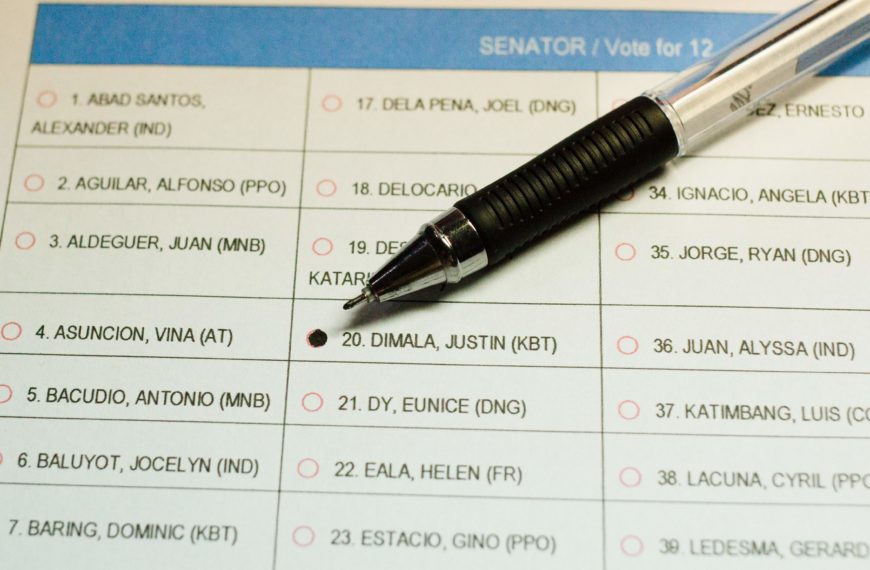 SENATOR / Vote for 12
1. ABAD SANTOS,
ALEXANDER (IND)
2. AGUILAR, ALFONSO (PPO)
3. ALDEGUER, JUAN (MNB)
4. ASUNCION, VINA (AT)
5. BACUDIO, ANTONIO (MNB)
6. BALUYOT, JOCELYN (IND)
7. BARING, DOMINIC (KBT)
17. DELA PENA, JOEL (DNG)
18. DELOCARIO
19.
20. DIMALA, JUSTIN (KBT)
21. DY, EUNICE (DNG)
22. EALA, HELEN (FR)
23. ESTACIO, GINO (PPO)
ERNESTO
34. IGNACIO, ANGELA (KBT
35. JORGE, RYAN (DNG)
36. JUAN, ALYSSA (IND)
37. KATIMBANG, LUIS
38. LACUNA, CYRIL (PPO
39. LEDESMA, GERARD